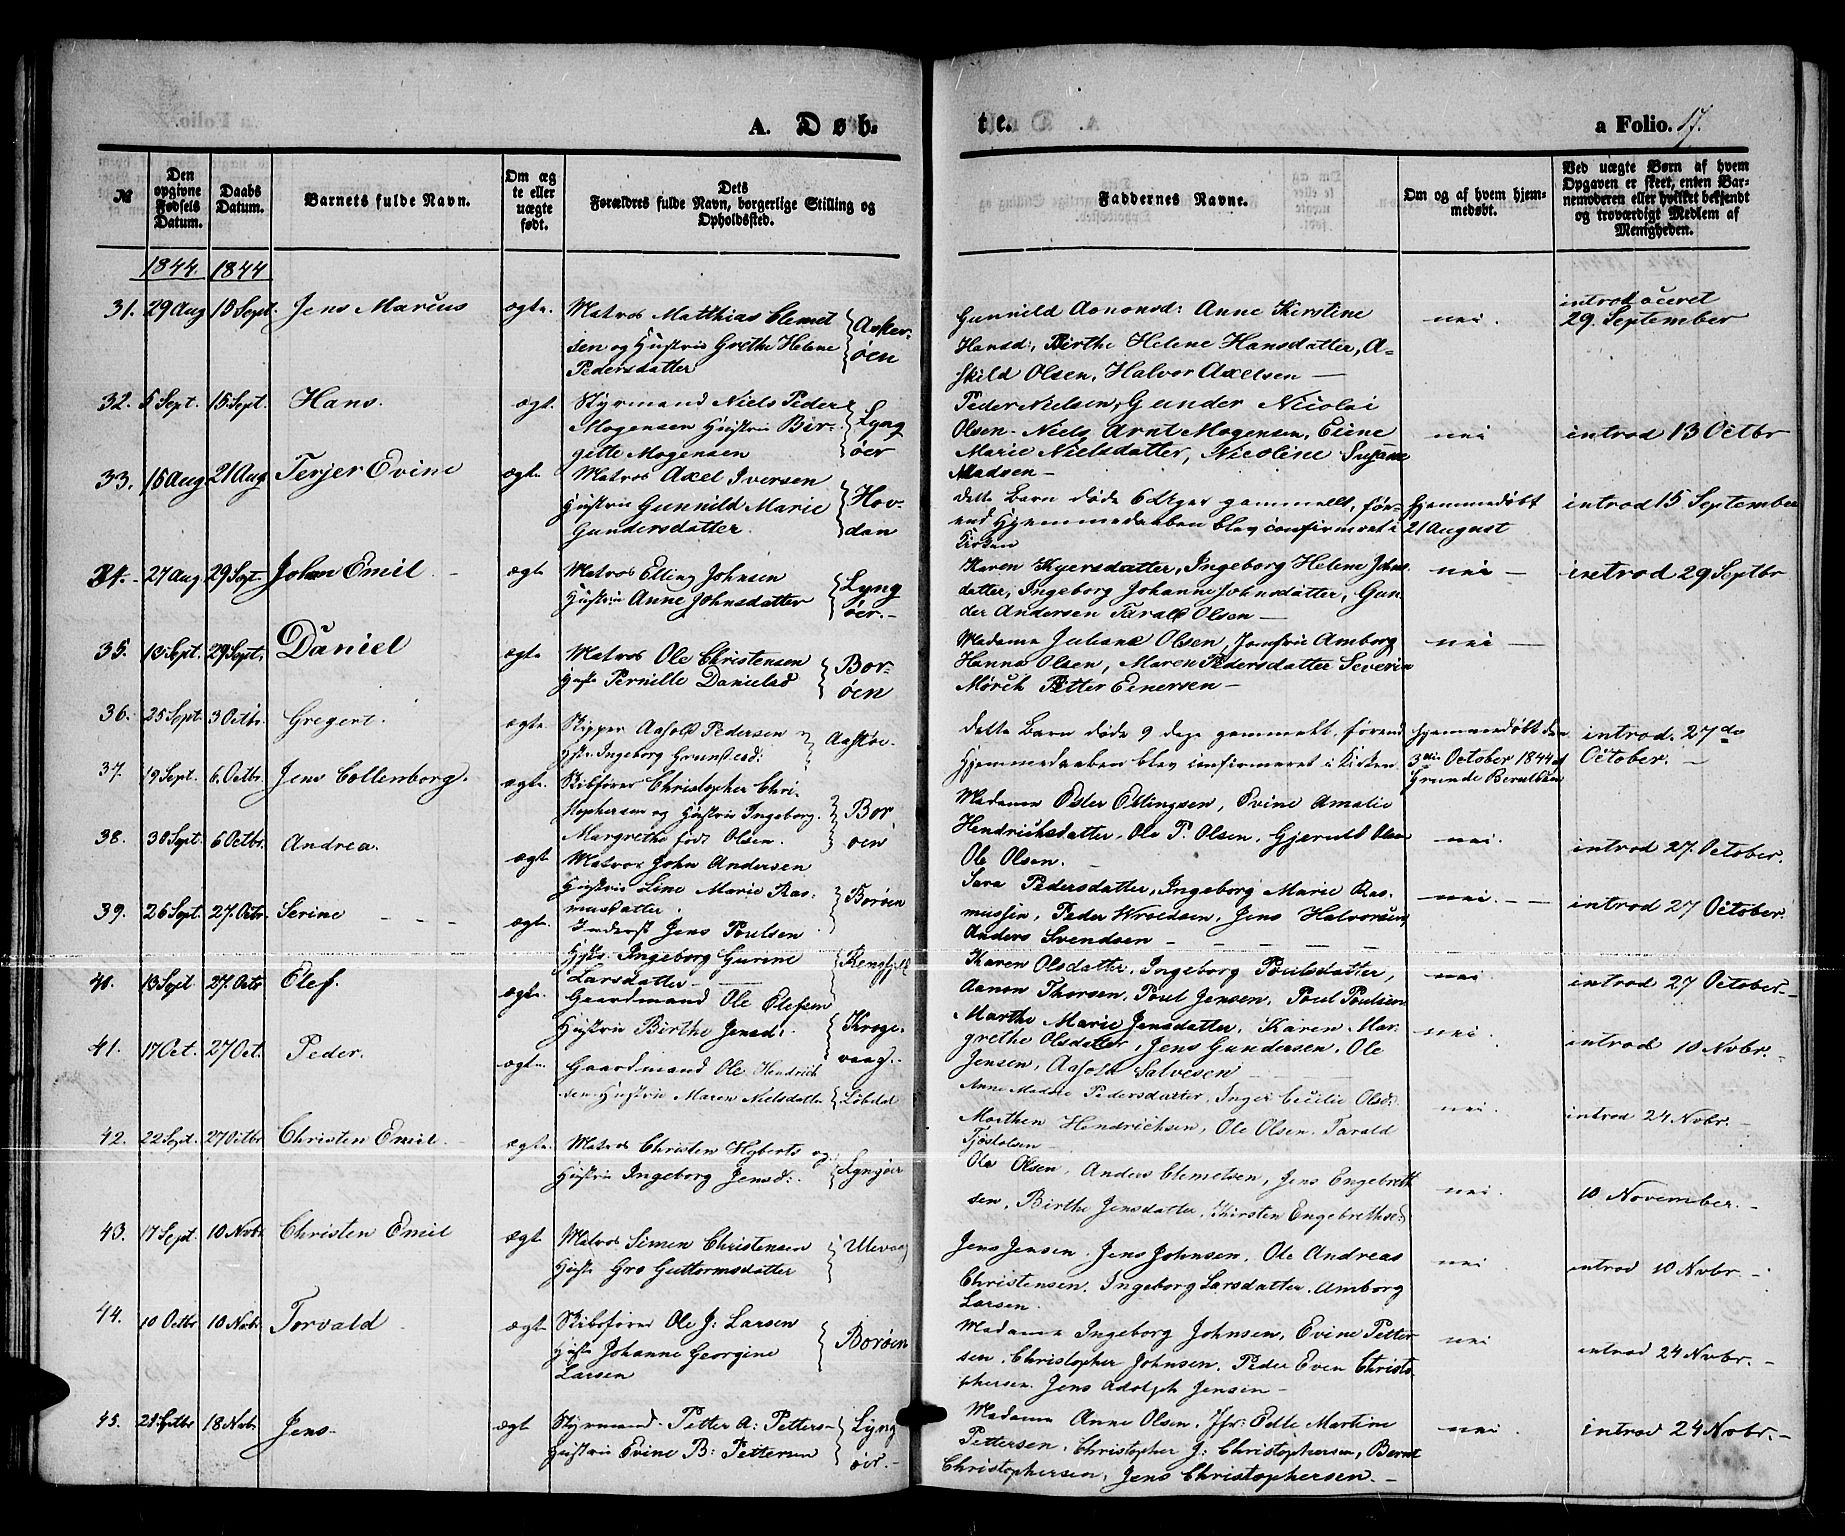 A. Døb-
te.
a Folio. 17.
No
Den opgivne Fødsels Datum.
Daabs Datum.
Barnets fulde Navn.
Om ægte eller uægte født.
Dets Forældres fulde Navn, borgerlige Stilling og Opholdssted.
Faddernes Navne.
Om og af hvem hjemmedøbt.
Ved uægte Børn af hvem Opgaven er skeet, enten Barnemoderen eller hvilket bekjendt og troværdigt Medlem af Menigheden.
1844 1844
31. 29 Aug 15 Sept. Jens Marius ægte. Matros Matthias Clemet
sen og Hustru Grethe Helene
Pedersdatter
Asker-
øen
Gunild Aanonsd: Anne Kirstine
Hansd:, Birthe Helene Hansdatter, A-
skild Olsen, Halvor Axelsen —
nei.
introduceret
29. September
32. 5 Sept. 15 Sept. Hans. ægt. Styrmand Niels Peder
Mogensen Hustru Bir-
gitte Mogensen
Lyng
öer
Peder Nielsen, Gunder Nicolai
Olsen. Niels Arnt Mogensen,
Marie Nielsdatter, Nicoline Susane
Madsen —
nei
introd 13 Octbr
33. 16 Aug 21 Aug Terjer Evine ægte. Matros Axel Iversen
Hustru Gunnild Marie
Gundersdatter.
Hov-
dan
dette Barn døde 6 Uger gammelt, før-
end Hjemmedaaben blev confirmeret i
Kirken
hjemmedøbt
21 August
introd 15 September
34. 27 Aug 29 Sept. Johan Emil ægte Matros Elling Johnsen
Hustru Anne Johnsdatter
Lyng
öer.—
Karen Kjersdatter, Ingeborg Helene Johns
datter, Ingeborg Johanne Johnsdatter, Gun
der Andersen Tarald Olsen —
nei —
introd 29 Septbr
35. 13 Sept. 29 Sept. Daniel ægte Matros Ole Christensen
Hustr Pernille Danielsd
Bor-
öen
Madame Juliane Olsen, Jomfru Amborg
Hanna Olsen, Maren Pedersdatter Severin
Mörch Petter Einersen —
nei —
36. 25 Sept. 3 Octbr. Gregert. ægte. Skipper Aasold Pedersen
Hstr. Ingeborg
dette Barn døde 9 dage gammelt, førend
Hjemmedaaben blev confirmeret i Kirken
hjemmedøbt den
3die October 1844 af
introd. 27de
October. —
37. 19 Sept. 6. Octbr. Jens Collenborg. ægte. Skibsfører Christopher Chri-
stophersen og Hustru Ingeborg
Margrethe født Olsen.
Bor
öen
Madame Ester Ellingsen, Evine Amalie
Hendrichsdatter, Ole P. Olsen, Gjeruld Olsen
Ole Olsen.
nei.
introd 27. October.
38. 30 Sept. 6 Octbr. Andrea. ægt Matros John Andersen
Hustru Line Marie Ras:
musdatter.
Boröen
Sara Pedersdatter, Ingeborg Marie Ras
mussen, Peder Wroldsen, Jens Halvorsen,
Anders Svendsen —
nei. —
introd 27 October.
39. 26 Sept. 27. Octr. Serine ægte. Inderst Jens Poulsen
Hstr. Ingeborg Gurine
Larsdatter —
Karen Olsdatter. Ingeborg Poulsdatter,
Aanon Thorsen, Poul Jensen, Poul Poulsen
nei
introd 27 October.—
40. 13 Sept 27. Octr Elef. ægte. Gaardmand Ole Elefsen
Hustru Birthe Jensd:.
Kroge-
vaag.
Marthe Marie Jensdatter. Karen Mar-
grethe Olsdatter, Jens Gundersen, Ole
Jensen, Aasold Salvesen
nei
introd 10 Novbr.—
41. 17 Oct. 27 Oct. Peder. ægte. Gaardmand Ole Hendrich
sen Hustru Maren Nielsdatter
Anne Pedersdatter, Inger Cecilie Olsd:
Morthen Hendrichsen, Ole Olsen. Tarald
Tjöstolsen —
nei.
introd 24 Novbr.—
42. 22 Sept. 27 Octbr Christen Emil. ægte. Matros Christen Hyberts og
Hustru Ingeborg Jensd:.
Lyngöer
Ole Olsen, Anders Clemetsen, Jens Engebreth
sen, Birthe Jensdatter, Kirsten Engebrethsen
nei.
10 November.—
43. 17 Sept. 10 Novbr. Christen Emil ægt. Matros Simen Christensen
Hustr Gro Guttormsdatter
Ulevaag
Jens Jensen. Jens Johnsen. Ole Andreas
Christensen. Ingeborg Larsdatter. Amborg
Larsen.
nei.
introd 10 Novbr. —
44. 10 Octbr 10 Novbr. Torvald ægte Skibsfører Ole J: Larsen
Hustr Johanne Georgine
Larsen
Boröen
Madame Ingeborg Johnsen, Evine Petter
sen, Christopher Johnsen, Peder Even Christo-
phersen, Jens Adolph Jensen —
nei
introd 24 Novbr.—
45. 21 Octbr 18 Novbr Jens. ægt Styrmand Petter A: Petters-
Hustru Evine B: Pettersen
Lyng
öer.—
Madame Anne Olsen. Jfr: Edle Martine
Pettersen, Christopher J: Christophersen, Bernt
Christophersen, Jens Christophersen. —
nei.
introd 24 Novbr.—